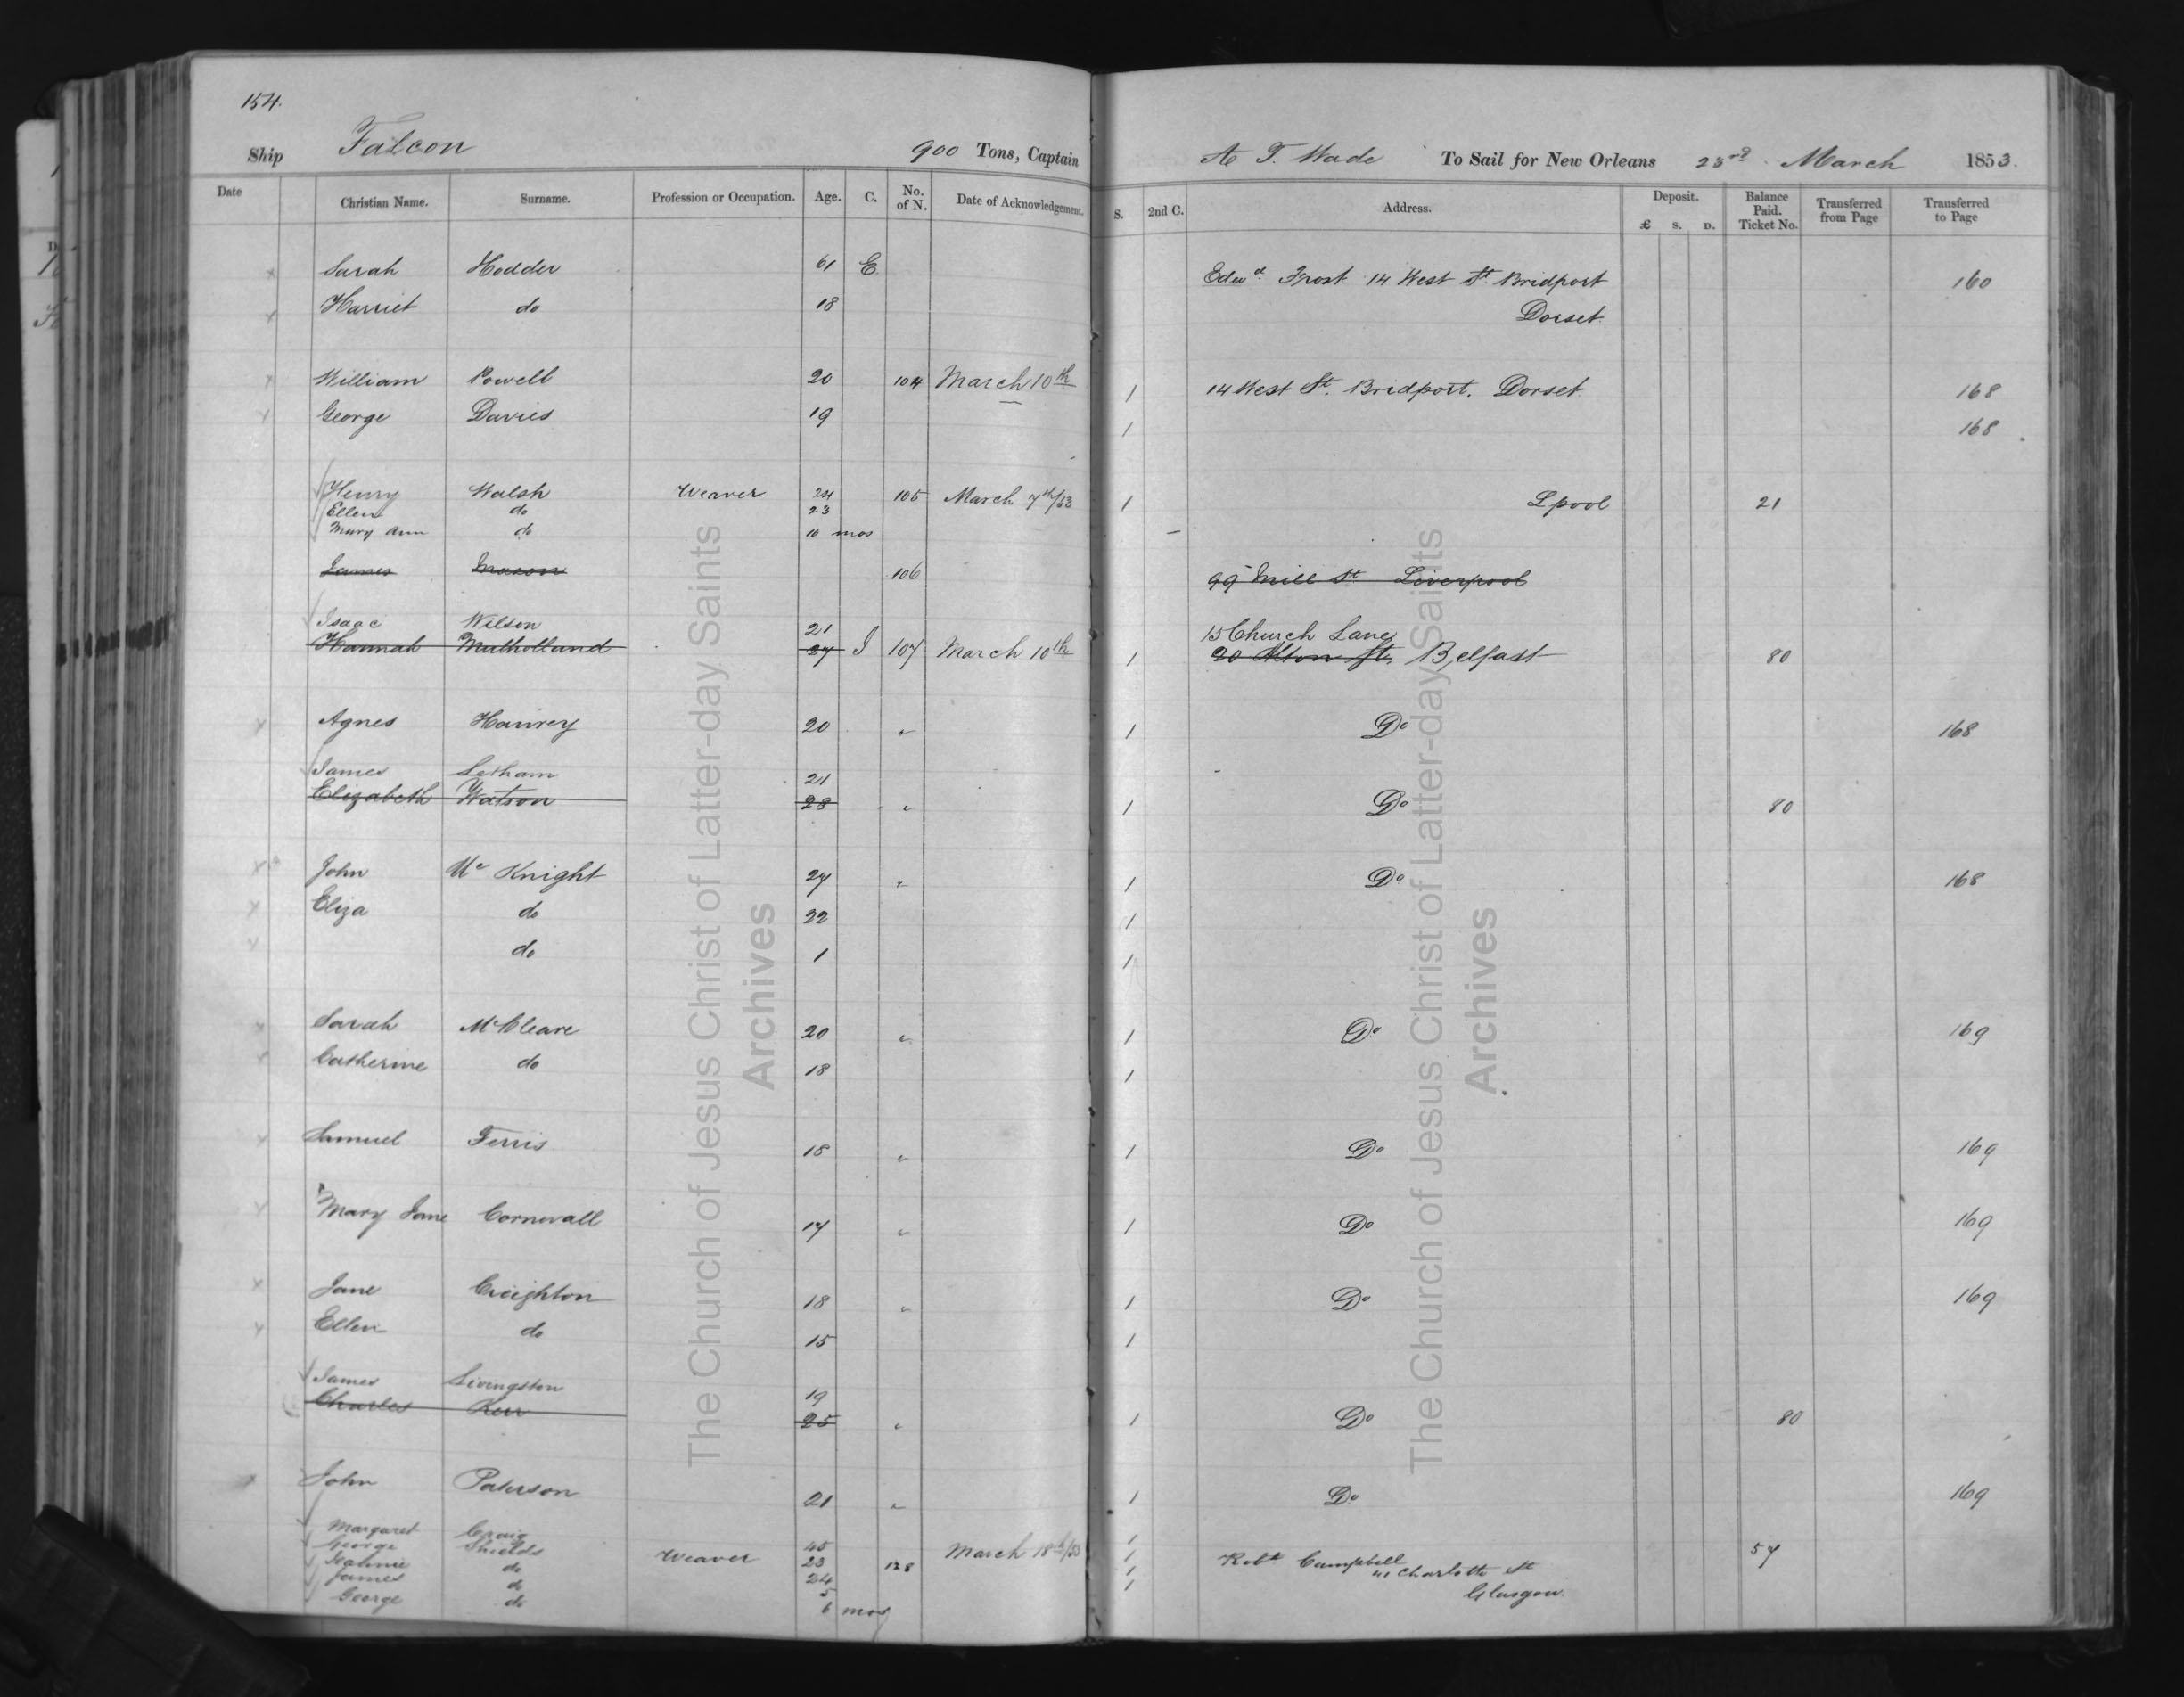 154.
Ship Falcon 900 Tons, Captain A T. Wade To Sail for New Orleans 23rd March 1853.
Date Christian Name. Surname. Profession or Occupation. Age. C. No. of N. Date of Acknowledgement. S. 2nd C. Address. Deposit. £ S. D. Balance Paid. Ticket No. Transferred from Page Transferred to Page
Sarah Hodder 61 E Edwd. Frost 14 West St. Bridport 160
Harriet do 18 Dorset.
William Powell 20 104 March 10th 1 14 West St. Bridport. Dorset 168
George Davies 19 1 168
Henry Walsh Weaver 24 105 March 7th/53 1 Lpool 21
Ellen do 23
Mary Ann do 10 mos
James Mason 106 99 Mill St Liverpool
Isaac Wilson 21 15 Church Lane
Hannah Mulholland 27 I 107 March 10th 1 20 Alton St. Belfast 80
Agnes 20 " 1 Do 168
James Letham 21
Elizabeth Watson 28 " 1 Do 80
John Mc Knight 27 " 1 Do 168
Eliza do 22 1
do 1 1
Sarah McCleare 20 " 1 Do 169
Catherine do 18 1
Samuel Ferris 18 " 1 Do 169
Mary Jane Cornwall 17 " 1 Do 169
Jane Creighton 18 " 1 Do 169
Ellen do 15 1
James Livingston 19
Charles Kerr 25 " 1 Do 80
John Paterson 21 " 1 Do 169
Margaret Craig 45 1
George Shields Weaver 23 128 March 18th/53 1 Robt Campbell 57
do 24 1 Charlotte St
James do 5 1 Glasgow.
George do 6 mos
The Church of Jesus Christ of Latter-day Saints
Archives
The Church of Jesus Christ of Latter-day Saints
Archives